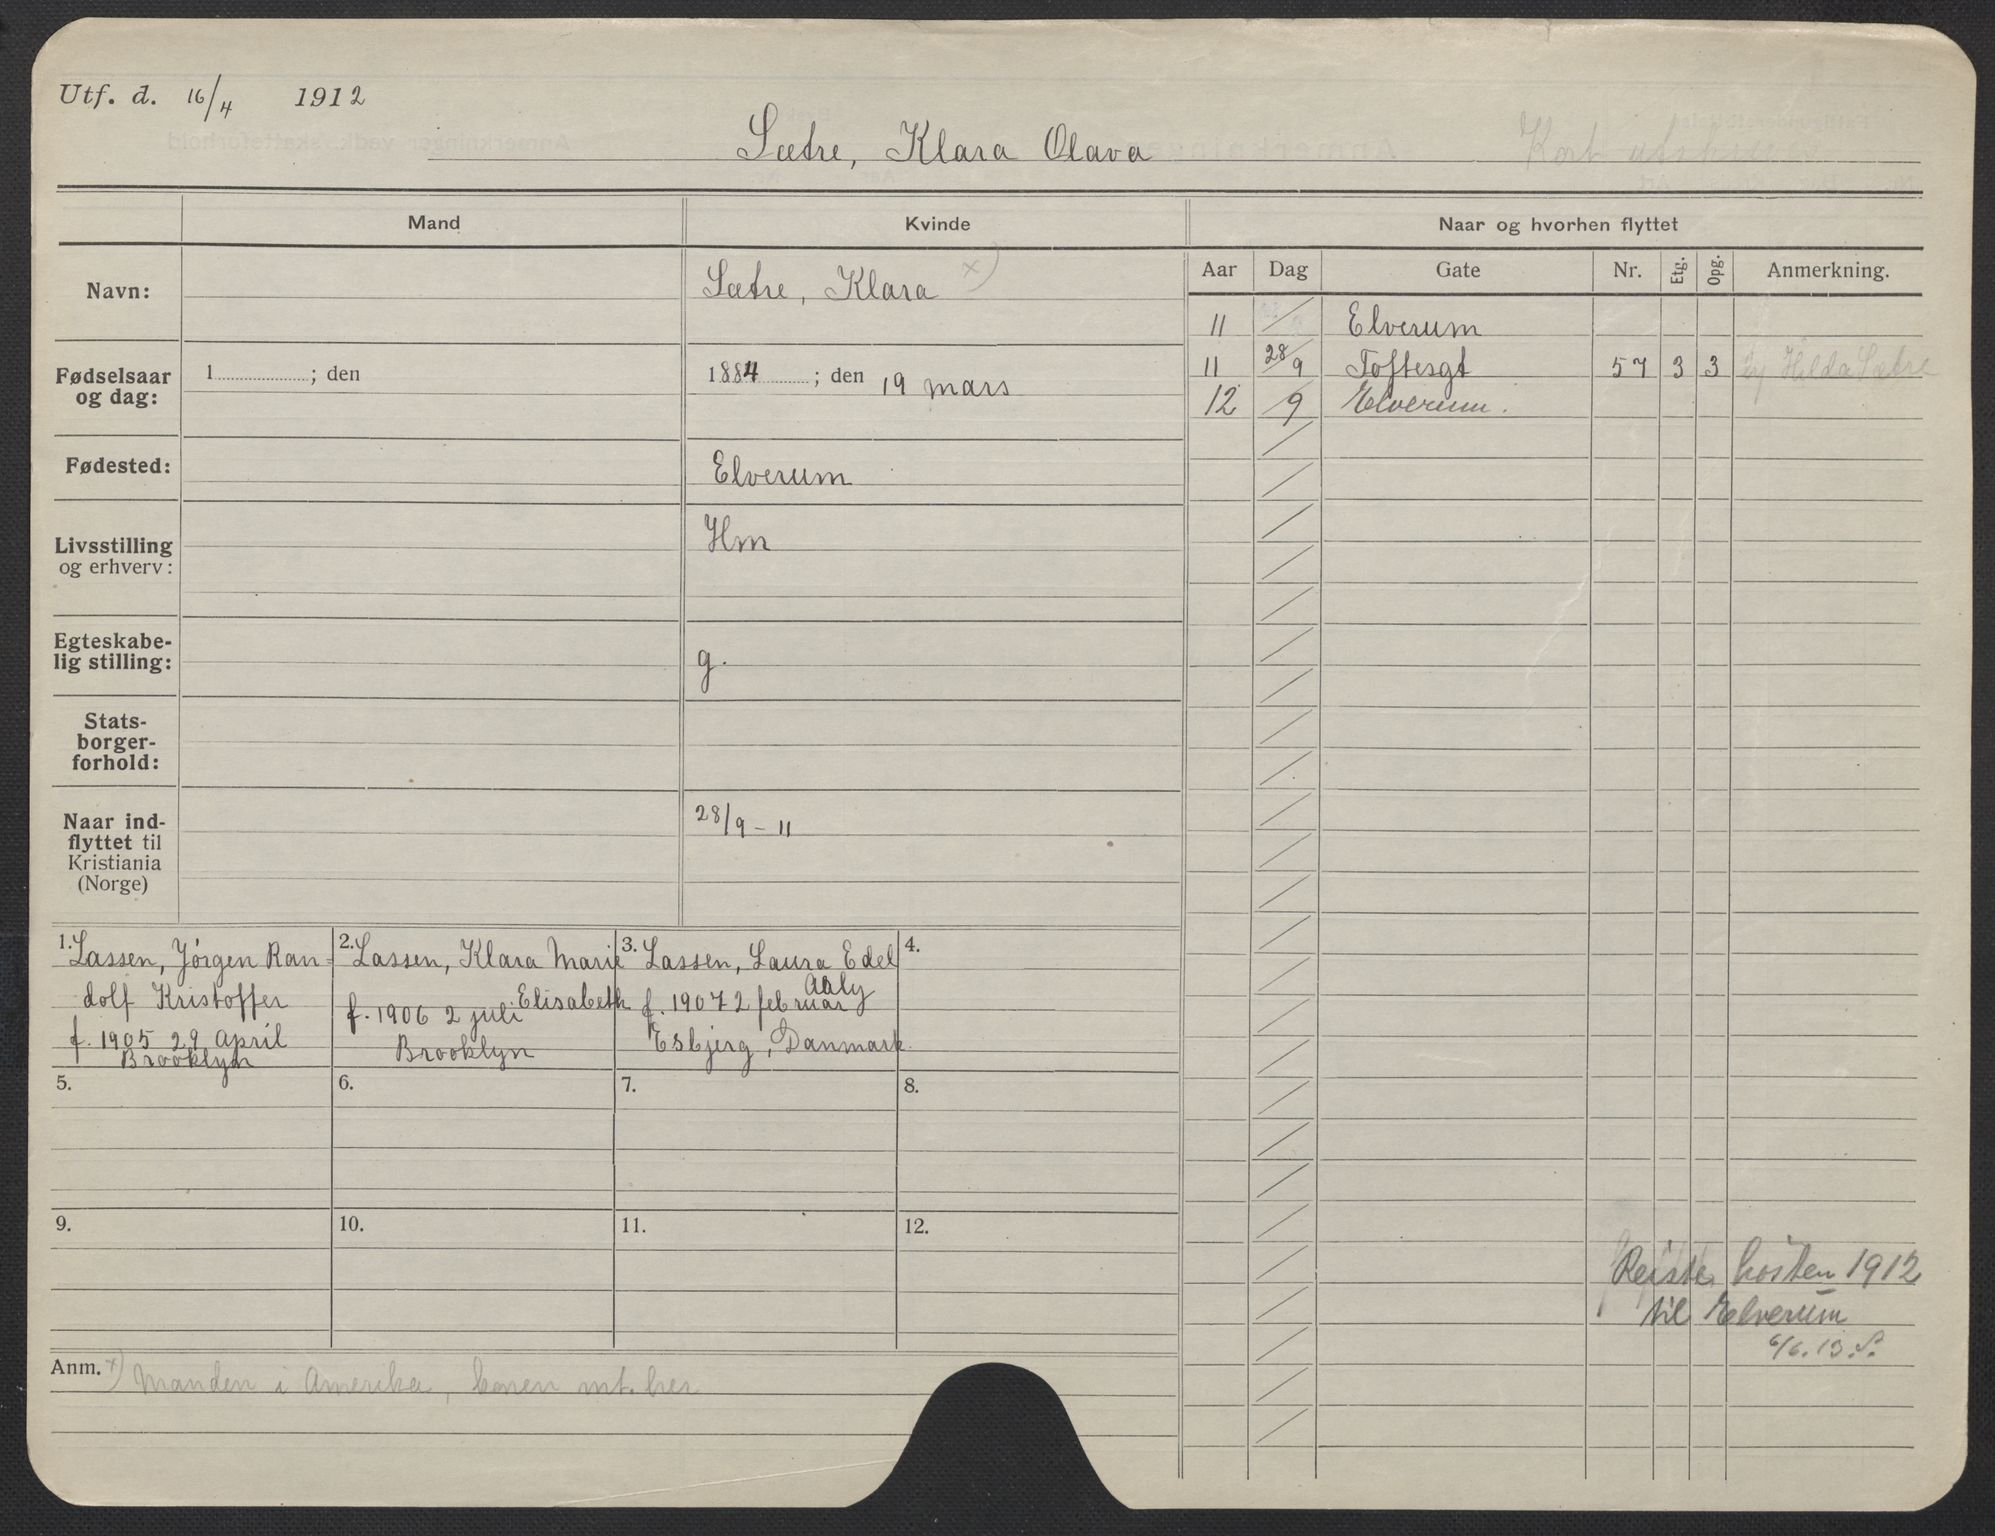 Utf. d. 16/4 1912
Sætre, Klara Olava
Kort
Mand
Kvinde
Naar og hvorhen flyttet
Navn:
Sætre, Klara x)
Fødselsaar
og dag:
1 ; den
1884 ; den 19 mars
Fødested:
Elverum
Livsstilling
og erhverv:
Hm
Egteskabe-
lig stilling:
g.
Stats-
borger-
forhold:
Naar ind-
flyttet til
Kristiania
(Norge)
28/9 - 11
Aar Dag Gate Nr. Etg. Opg. Anmerkning.
11 / Elverum
11 28/9 Toftesgt 57 3 3 Hilda Sætre
12 /9 Elverum.
1. Lassen, Jörgen Ran-
dolf Kristoffer
f. 1905 29 april
Brooklyn
2. Lassen, Klara Marie
Elisabeth
f. 1906 2 juli
Brooklyn
3. Lassen, Laura Edel
f. 1907 2 februar
Esbjerg, Danmark.
4.
5.
6.
7.
8.
9.
10.
11.
12.
Reiste hösten 1912
til Elverum
6/6. 13. S.
Anm. x) Manden i Amerika, konen mt. her